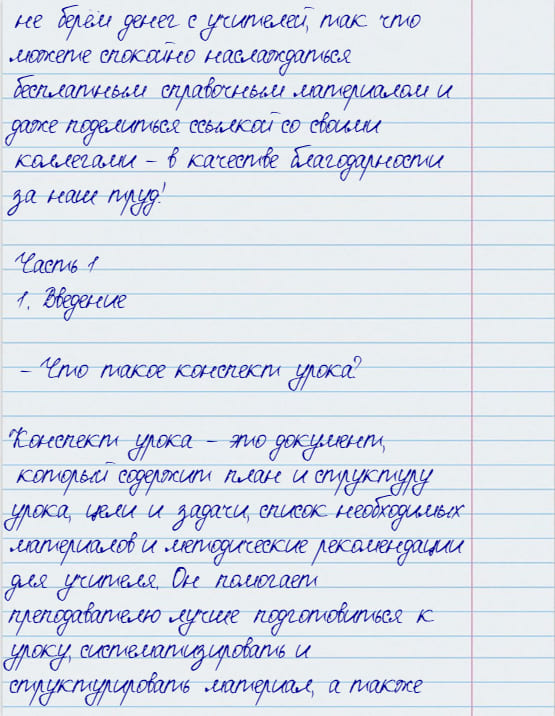 не берём денег с учителей, так что
можете спокойно наслаждаться
бесплатным справочным материалом и
даже поделиться ссылкой со своими
коллегами – в качестве благодарности
за наш труд!
Часть 1
1. Введение
- Что такое конспект урока?
Конспект урока – это документ,
который содержит план и структуру
урока, цели и задачи, список необходимых
материалов и методические рекомендации
для учителя. Он помогает
преподавателю лучше подготовиться к
уроку, систематизировать и
структурировать материал, а также